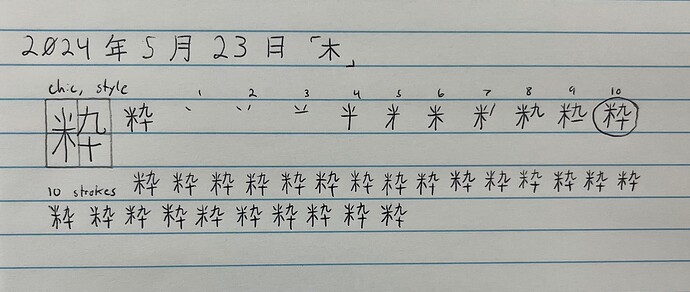 2024 年 5 月 23 日 「木」
chic, style 1 2 3 4 5 6 7 8 9 10
粋 粋 丶 丷 䒑 半 米 粋
10 strokes 粋 粋 粋 粋 粋 粋 粋 粋 粋 粋 粋 粋 粋 粋 粋
粋 粋 粋 粋 粋 粋 粋 粋 粋 粋